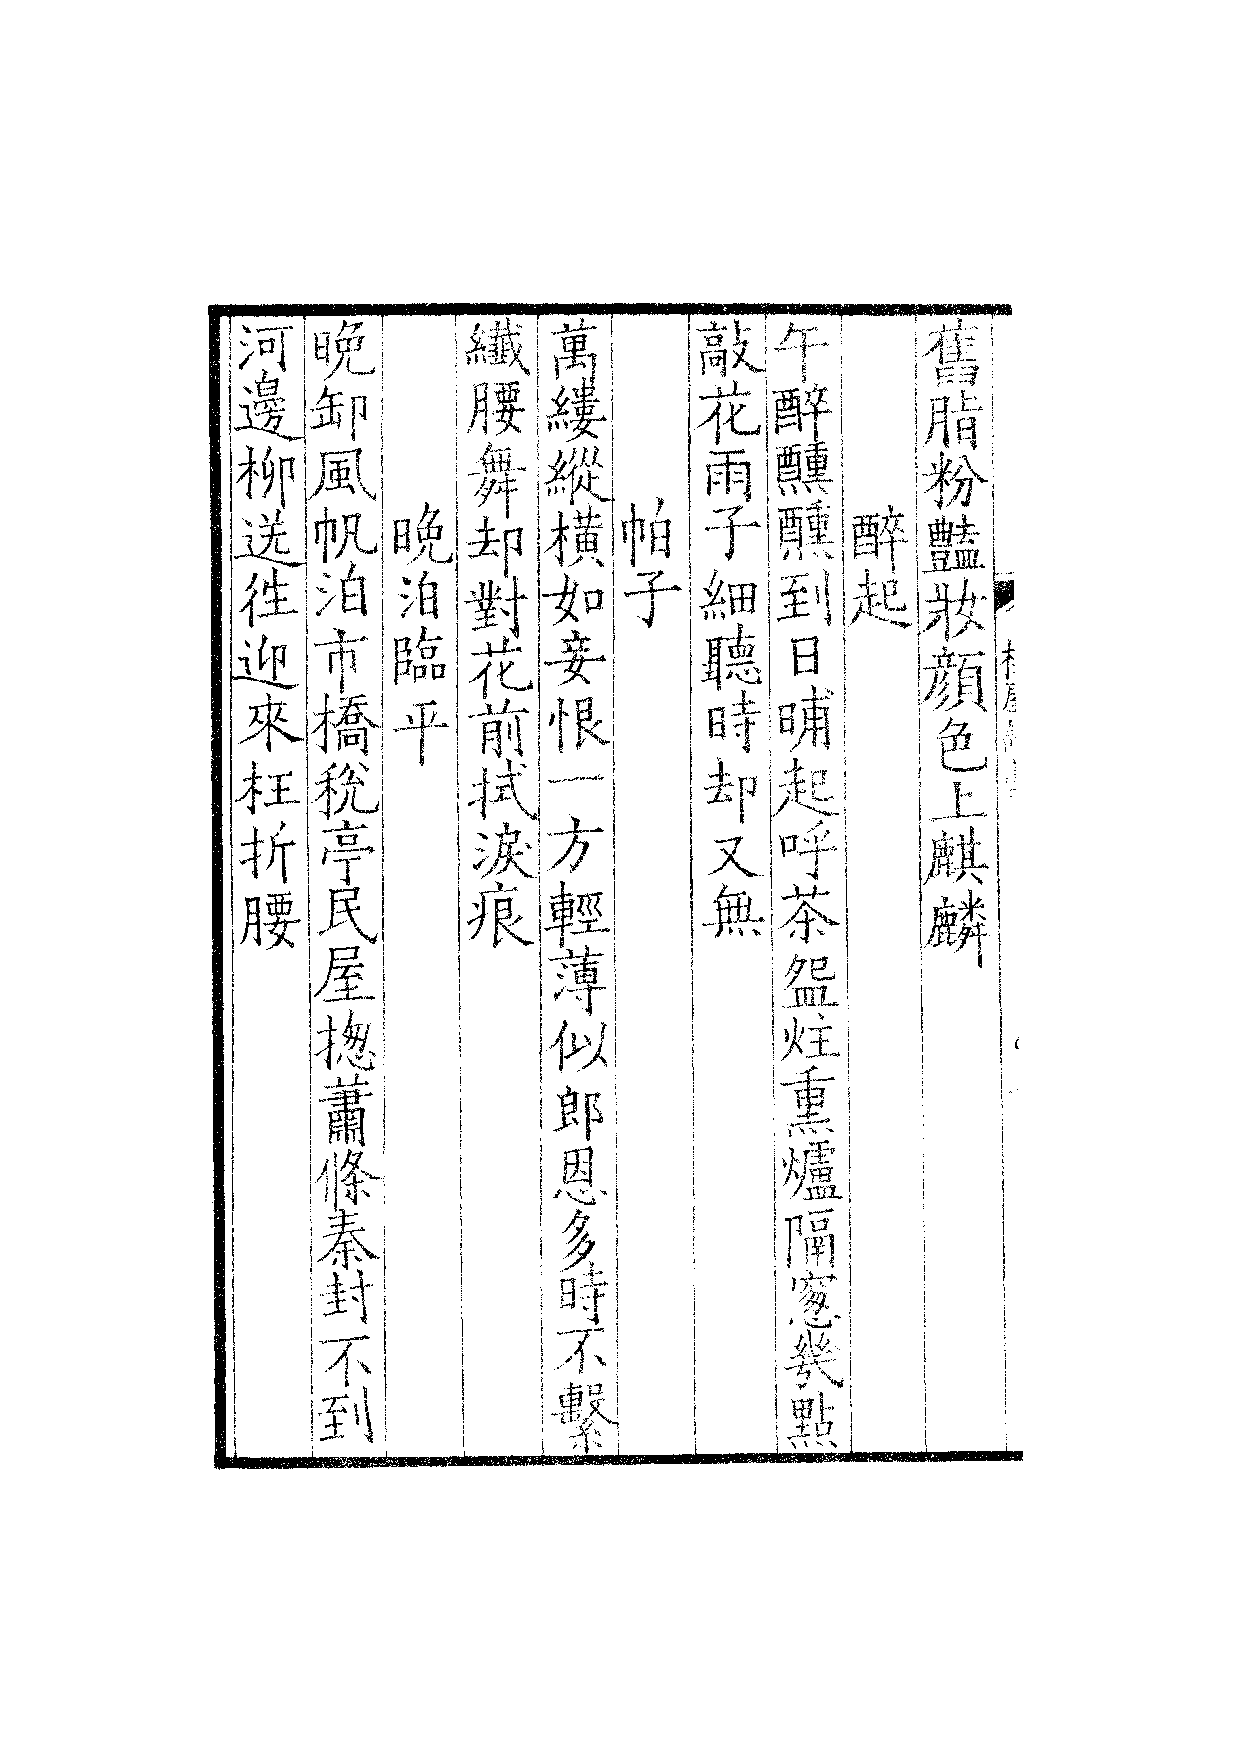 舊脂粉豔妝顔色上麒麟
醉起
午醉醺醺到日晡起呼茶盌炷熏爐隔窓幾點
敲花雨子細聽時却又無
帕子
萬縷縱横如妾恨一方輕薄似郎恩多時不繫
纖腰舞却對花前拭淚痕
晚泊臨平
晚卸風帆泊市橋稅亭民屋揔蕭條秦封不到
河邊柳送徃迎來枉折腰